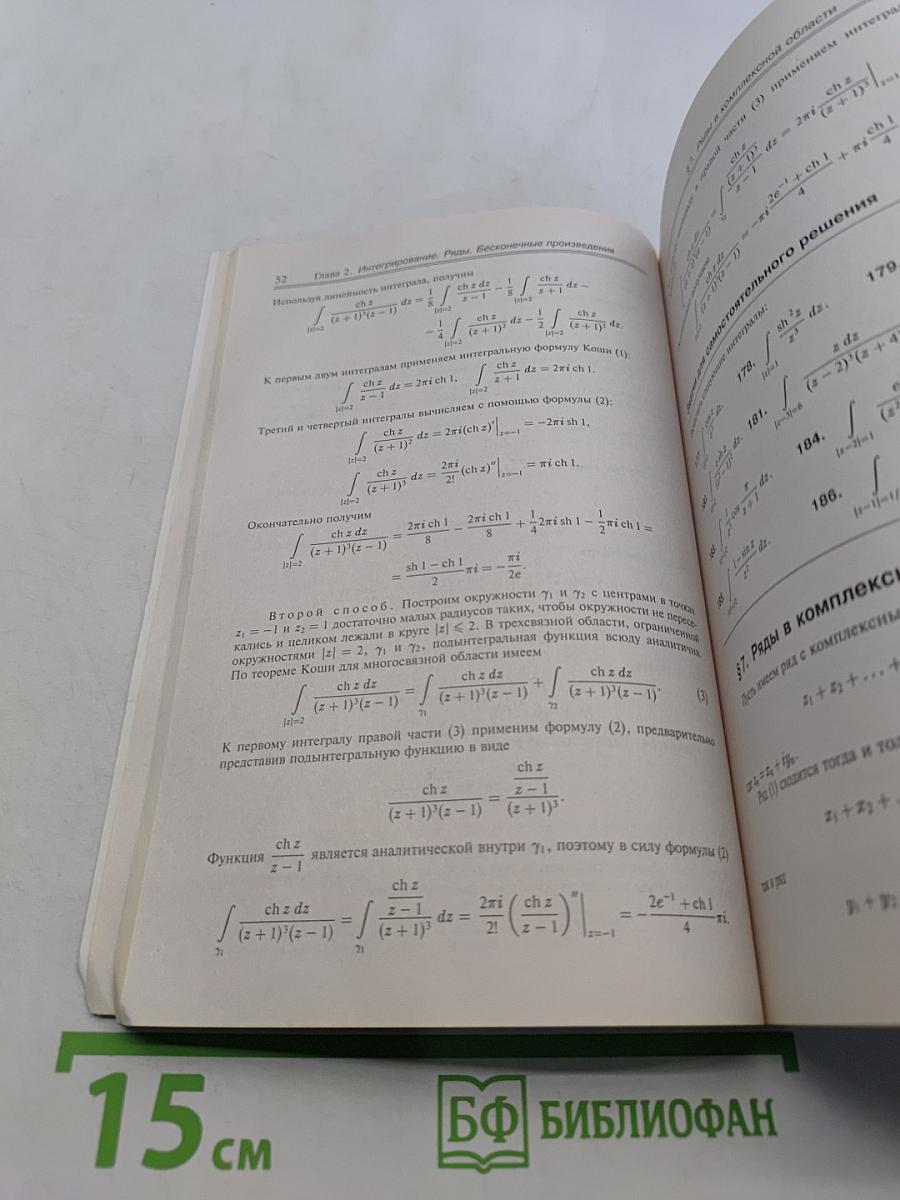 52 Глава 2. Интегрирование. Ряды. Бесконечные произведения
Используя линейность интеграла, получим
∫_{|z|=2} ch z / ((z + 1)³(z − 1)) dz = 1/8 ∫_{|z|=2} ch z dz / (z − 1) − 1/8 ∫_{|z|=2} ch z / (z + 1) dz −
− 1/4 ∫_{|z|=2} ch z / (z + 1)² dz − 1/2 ∫_{|z|=2} ch z / (z + 1)³ dz.
К первым двум интегралам применяем интегральную формулу Коши (1):
∫_{|z|=2} ch z / (z − 1) dz = 2πi ch 1, ∫_{|z|=2} ch z / (z + 1) dz = 2πi ch 1.
Третий и четвертый интегралы вычисляем с помощью формулы (2):
∫_{|z|=2} ch z / (z + 1)² dz = 2πi(ch z)′|_{z=−1} = −2πi sh 1,
∫_{|z|=2} ch z / (z + 1)³ dz = 2πi/2! (ch z)″|_{z=−1} = πi ch 1.
Окончательно получим
∫_{|z|=2} ch z dz / ((z + 1)³(z − 1)) = 2πi ch 1 / 8 − 2πi ch 1 / 8 + 1/4 2πi sh 1 − 1/2 πi ch 1 =
= (sh 1 − ch 1)/2 πi = − πi/2e.
Второй способ. Построим окружности γ₁ и γ₂ с центрами в точках
z₁ = −1 и z₂ = 1 достаточно малых радиусов таких, чтобы окружности не пересе-
кались и целиком лежали в круге |z| ⩽ 2. В трехсвязной области, ограниченной
окружностями |z| = 2, γ₁ и γ₂, подынтегральная функция всюду аналитична.
По теореме Коши для многосвязной области имеем
∫_{|z|=2} ch z dz / ((z + 1)³(z − 1)) = ∫_{γ₁} ch z dz / ((z + 1)³(z − 1)) + ∫_{γ₂} ch z dz / ((z + 1)³(z − 1)). (3)
К первому интегралу правой части (3) применим формулу (2), предварительно
представив подынтегральную функцию в виде
ch z / ((z + 1)³(z − 1)) = (ch z / (z − 1)) / (z + 1)³.
Функция ch z / (z − 1) является аналитической внутри γ₁, поэтому в силу формулы (2)
∫_{γ₁} ch z dz / ((z + 1)³(z − 1)) = ∫_{γ₁} (ch z / (z − 1)) / (z + 1)³ dz = 2πi/2! (ch z / (z − 1))″|_{z=−1} = − (2e⁻¹ + ch 1)/4 πi.
§7. Ряды в комплексной области
правой части (3) применяем интеграл
ch z / (z + 1)³ / (z − 1) dz = 2πi ch z / (z + 1)³ |_{z=1}
= −πi (2e⁻¹ + ch 1)/4 + πi ch 1 / 4
для самостоятельного решения
следующие интегралы:
178. ∫_{|z|=1} sh² z / z³ dz. 179.
181. ∫_{|z−3|=6} z dz / ((z − 2)³(z + 4)
184. ∫_{|z−2|=1}
186. ∫
§7. Ряды в комплексн
Пусть имеем ряд с комплексны
z₁ + z₂ + … +
Ряд (1) сходится тогда и тол
15 см
БФ БИБЛИОФАН